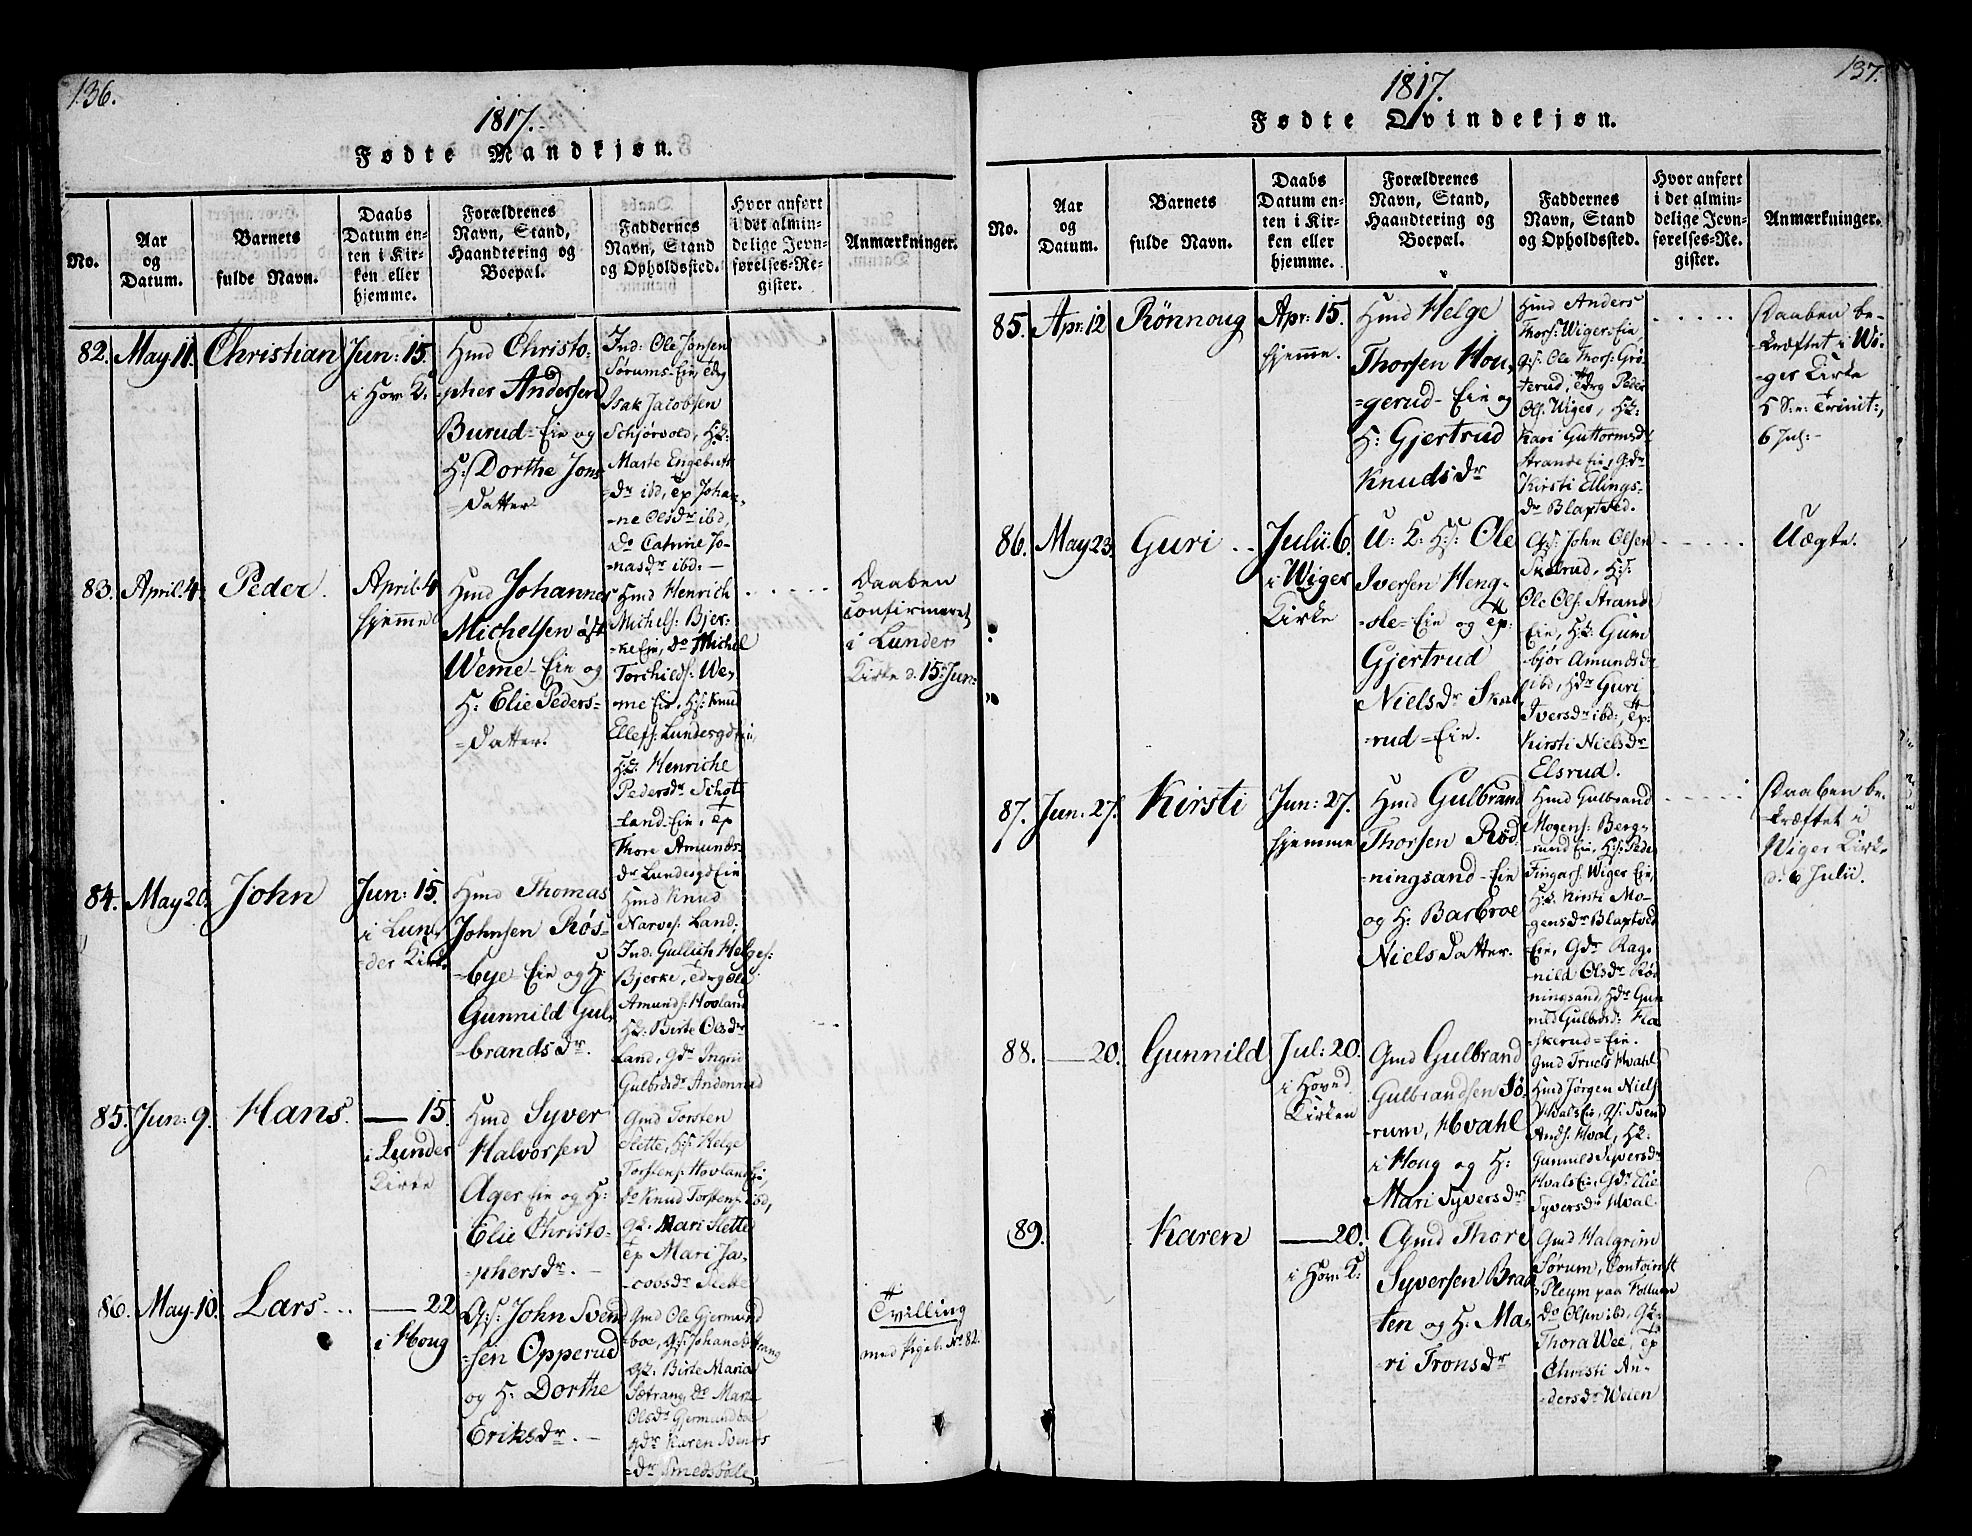 136.
1817.
Fødte Mandkjøn.
No.
Aar
og
Datum.
Barnets
fulde Navn.
Daabs
Datum en-
ten i Kir-
ken eller
hjemme.
Forældrenes
Navn, Stand,
Haandtering og
Boepæl.
Faddernes
Navn, Stand
og Opholdssted.
Hvor anført
i det almin-
delige Jevn-
førelses-Re-
gister.
Anmærkninger.
82. May 11. Christian Jun: 15.
i Hov: K.
Hmd Christo-
pher Andersen
Burud-Eie og
H: Dorthe Jons
=Datter
Ind: Ole Jonsen
Sørums-Eie,
Isak Jacobsen
Schjørvold, HK:
Marte Engebrets
=Dr ibd, Ep Johan-
=ne Olsdr ibd,
Do Catrine Jo-
=nasdr ibd: —
83. April. 4. Peder. April. 4
hjemme
Hmd Johannes
Michelsen øst
Weme-Eie og
H: Elie Peders=
=Datter.
Hmd Henrich
Michels: Bjer-
=ke Eie, Do Michel
Torchilds: We-
=me Eie, HS: Knud
Ellefs: Lundesgd Eie,
HK: Henriche
Pedersdr Schot-
=land-Eie, Ep
Thore Amunds-
dr Lundesgd Eie
Daaben
confirmeret
i Lunder
Kirke d. 15 Jun:
84. May 20. John Jun: 15.
i Lun-
=der Kirke
Hmd Thomas
Johnsen Røs-
=bye-Eie og H:
Gunnild Gul-
=brandsdr.
Hmd Knud
Narves: Land,
Ind: Gullich Helges:
Bjerke, Edrg Ole
Amunds: Hovland
HK: Birte Olsdr
Land, Gdr Ingrid
Gulbrdsdr
85. Jun: 9. Hans. — 15.
i Lunder
Kirke
Hmd Syver
Halvorsen
Ager Eie og H:
Elie Christo-
=phersdr. —
Gmd Torsten
Slette, HS: Helge
Torstens: Hovland Ei,
Do Knud Torstens: ibd,
GK: Mari Slette
Ep Mari Ja-
=cobsdr Slette
86. May. 10. Lars... — 22
i Houg
GS: John Svend
=sen Opperud
og H: Dorthe
Eriksdr. —
Gmd Ole Gjermund
=boe, GS: Johan Setrang
GK: Birte Maria
Sætrang, Do Marte
Olsdr Germundboe
Gdr Karen Svends
=dr Smedsbøle
Tvilling
med Pigeb. No 82.
137.
1817.
Fødte Qvindekjøn.
No.
Aar
og
Datum.
Barnets
fulde Navn.
Daabs
Datum en-
ten i Kir-
ken eller
hjemme.
Forældrenes
Navn, Stand,
Haandtering og
Boepæl.
Faddernes
Navn, Stand
og Opholdssted.
Hvor anført
i det almin-
delige Jevn-
førelses-Re-
gister.
Anmærkninger.
85. Apr: 12 Rönnoug Apr: 15.
hjemme.
Hmd Helge
Thorsen Hou-
=gerud-Eie og
H: Gjertrud
Knudsdr
Hmd Anders
Thors: Wigers Eie,
GS: Ole Thors: Grø-
terud, Edrg Peder
Ols: Wiger, HK:
Kari Guttormsdr
Strande Eie, Gdr
Kirsti Ellings-
dr Blaxtved.
Daaben be-
kræftet i Wi-
=ger Kirke
5 S: e: Trinit:,
6 Jul:-
86. May 23. Guri .. Julii. 6.
i Wiger
Kirke
U: K: HS: Ole
Iversen Heng-
=sle-Eie og Ep:
Gjertrud
Nielsdr Skal
=rud=Eie.
GS: John Olsen
Skalrud, HS:
Ole Ols: Strande
Eie, HK: Gum
=bjør Amundsdr
ibd, Hdr Guri
Iversdr ibd:, Ep:
Kirsti Nielsdr
Elsrud.
Uægte.
87. Jun: 27. Kirsti Jun: 27.
hjemme
Hmd Gulbrand
Thorsen Rød-
=ningsand-Eie
og H: Barbroe
Niels Datter.
Hmd Gulbrand
Mogens: Berg-
=mind Eie, HS: Peder
Fingars: Wiger Eie,
HK: Kirsti Mo-
gensdr Blaxtved
Eie, Gdr Rag-
=nild Olsdr Rød
=ningsand, Hdr Gun
=nild Gulbrdsd: Fla
=skerud=Eie.
Daaben be-
kræftet i
Wiger Kirke
d: 6 Julii.
88. — 20. Gunnild Jul: 20.
i Hoved
Kirken
Gmd Gulbrand
Gulbrandsen Sø-
=rum, Hvahl
i Houg og H:
Mari Syversdr
Gmd Truels Hvahl
Hmd Jørgen Niels:
Hvals Eie, GS: Svend
Ands: Hval, HK:
Gunnild Syversdr
Hvals Eie, Gdr Elie
Syversdr Hval.
89. Karen — 20.
i Hov: K:
Gmd Thore
Syversen Braa
ten og H: Ma-
=ri Tronsdr
Gmd Halgrim
Sørum, Contoirist
Pleym paa Follum
Do Olsen ibd, GK:
Thora Wee, Ep
Christi An-
=dersdr Weien